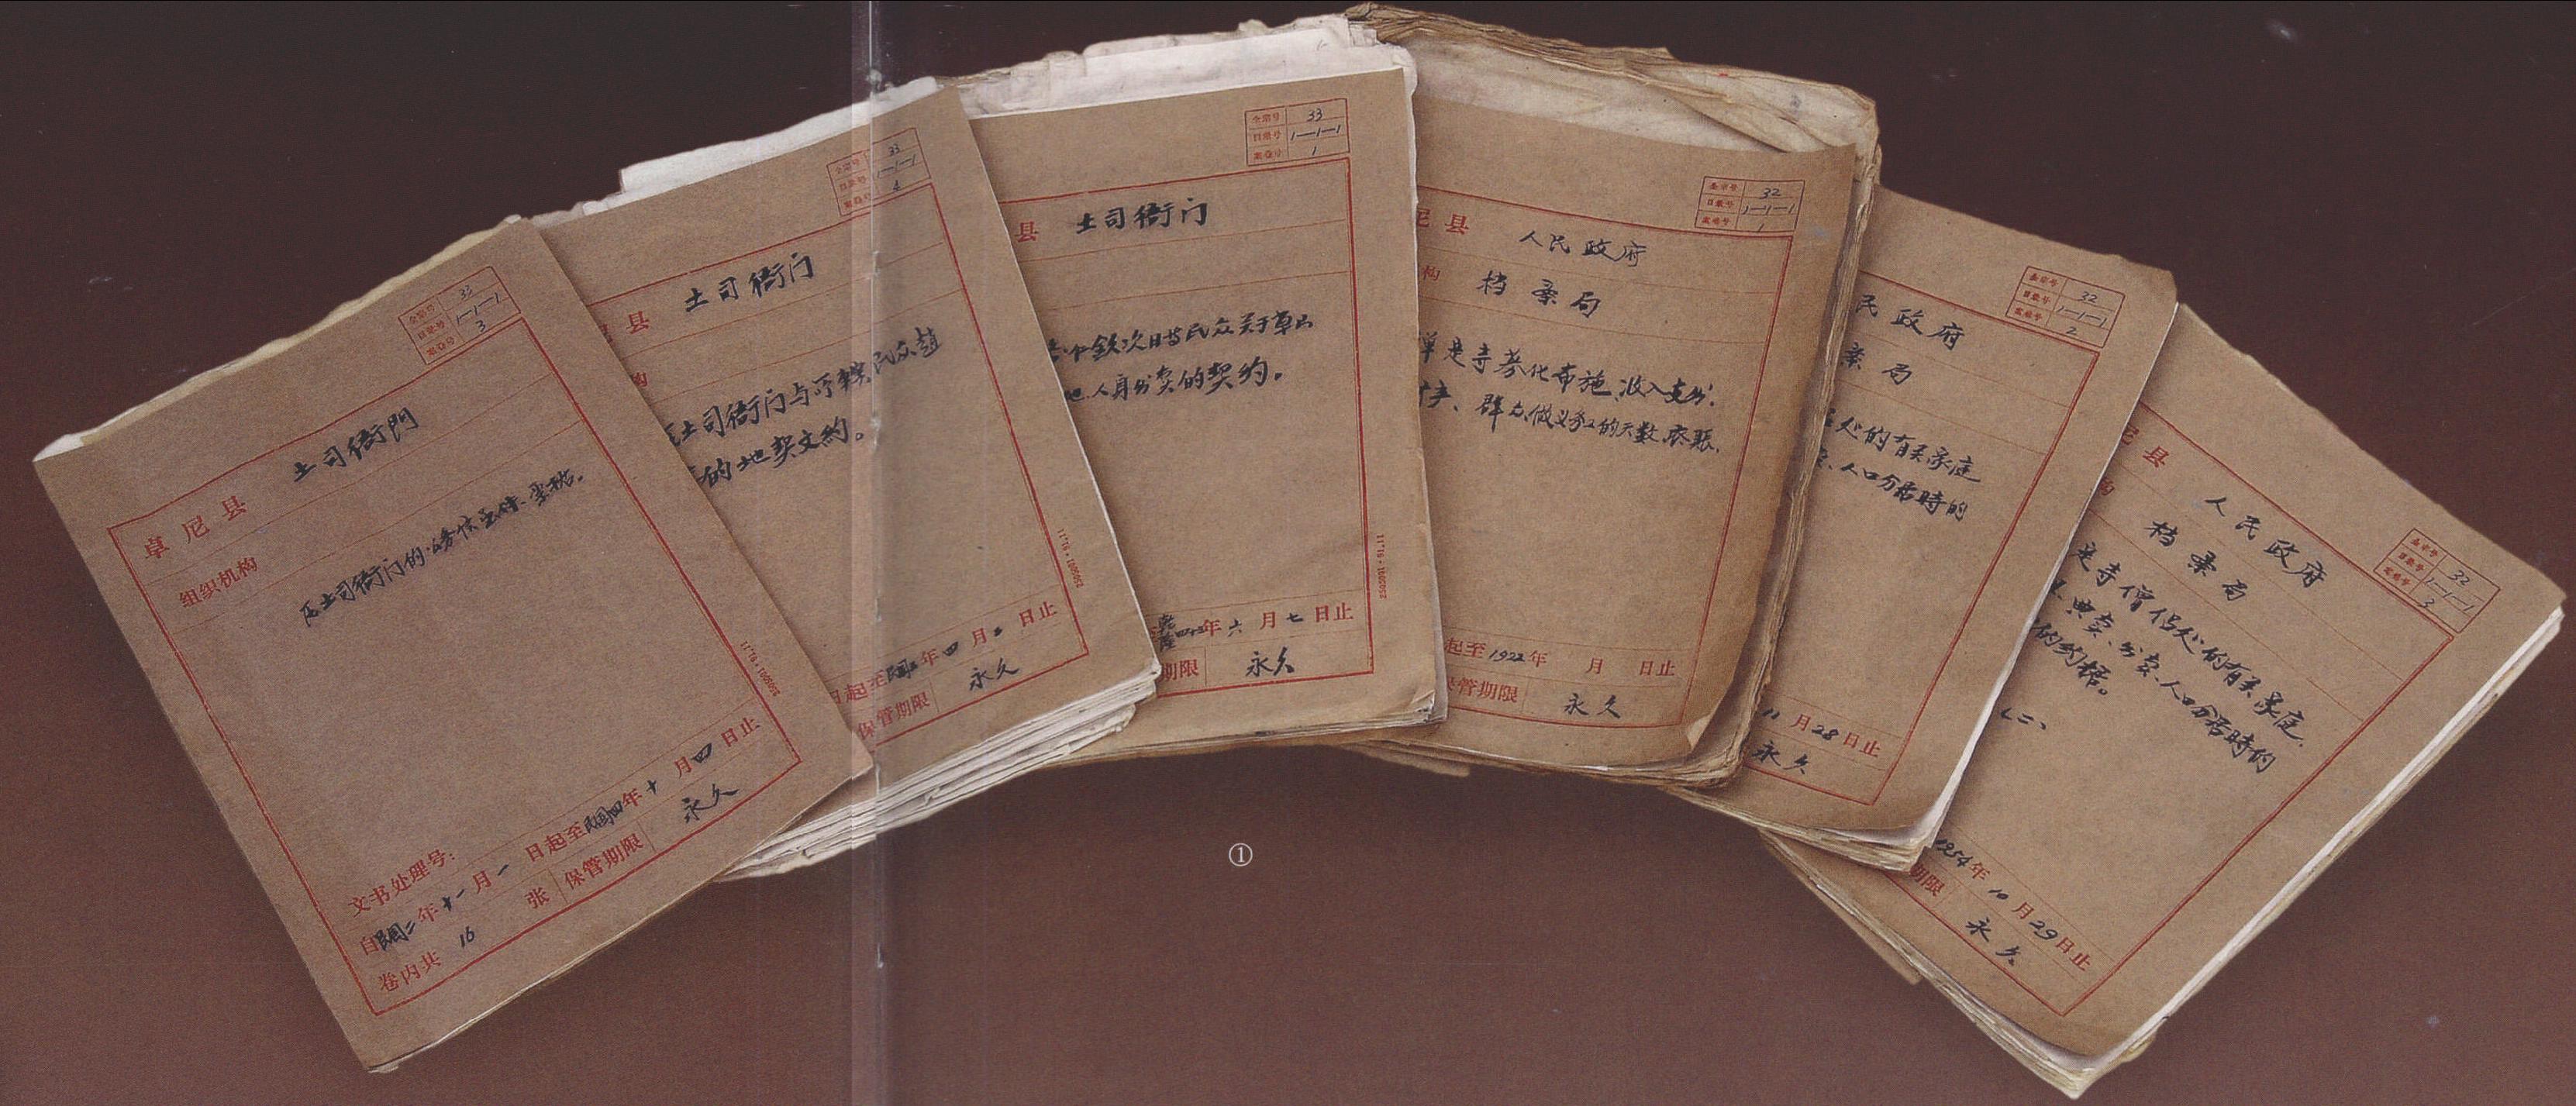 全宗号 33
目录号 1—1—1
案卷号 3
卓尼县 土司衙門
组织机构
土司衙门的
文书处理号:
自民国二年十一月一日起至民国四年十月四日止
卷内共 16 张 保管期限 永久
全宗号 33
目录号 1—1—1
案卷号 4
县 土司衙门
土司衙门与所辖民众
的地契文约。
年四月 日止
保管期限 永久
全宗号 33
目录号 1—1—1
案卷号 1
县 土司衙门
民众关于草山
人身出卖的契约。
乾隆 年六月七日止
期限 永久
全宗号 32
目录号 1—1—1
案卷号 1
尼县 人民政府
构 档案局
寺募化布施、收入支出、
群众做义务工的天数底账.
起至1922年 月 日止
保管期限 永久
全宗号 32
目录号 1—1—1
案卷号 2
民政府
案局
处的有关家庭
人口分居時的
11月28日止
永久
全宗号 32
目录号 1—1—1
案卷号 3
尼县 人民政府
构 档案局
是寺僧侣处的有关家庭、
典卖、出卖、人口分居時的
的约据。
(二)
1954年10月29日止
期限 永久
①